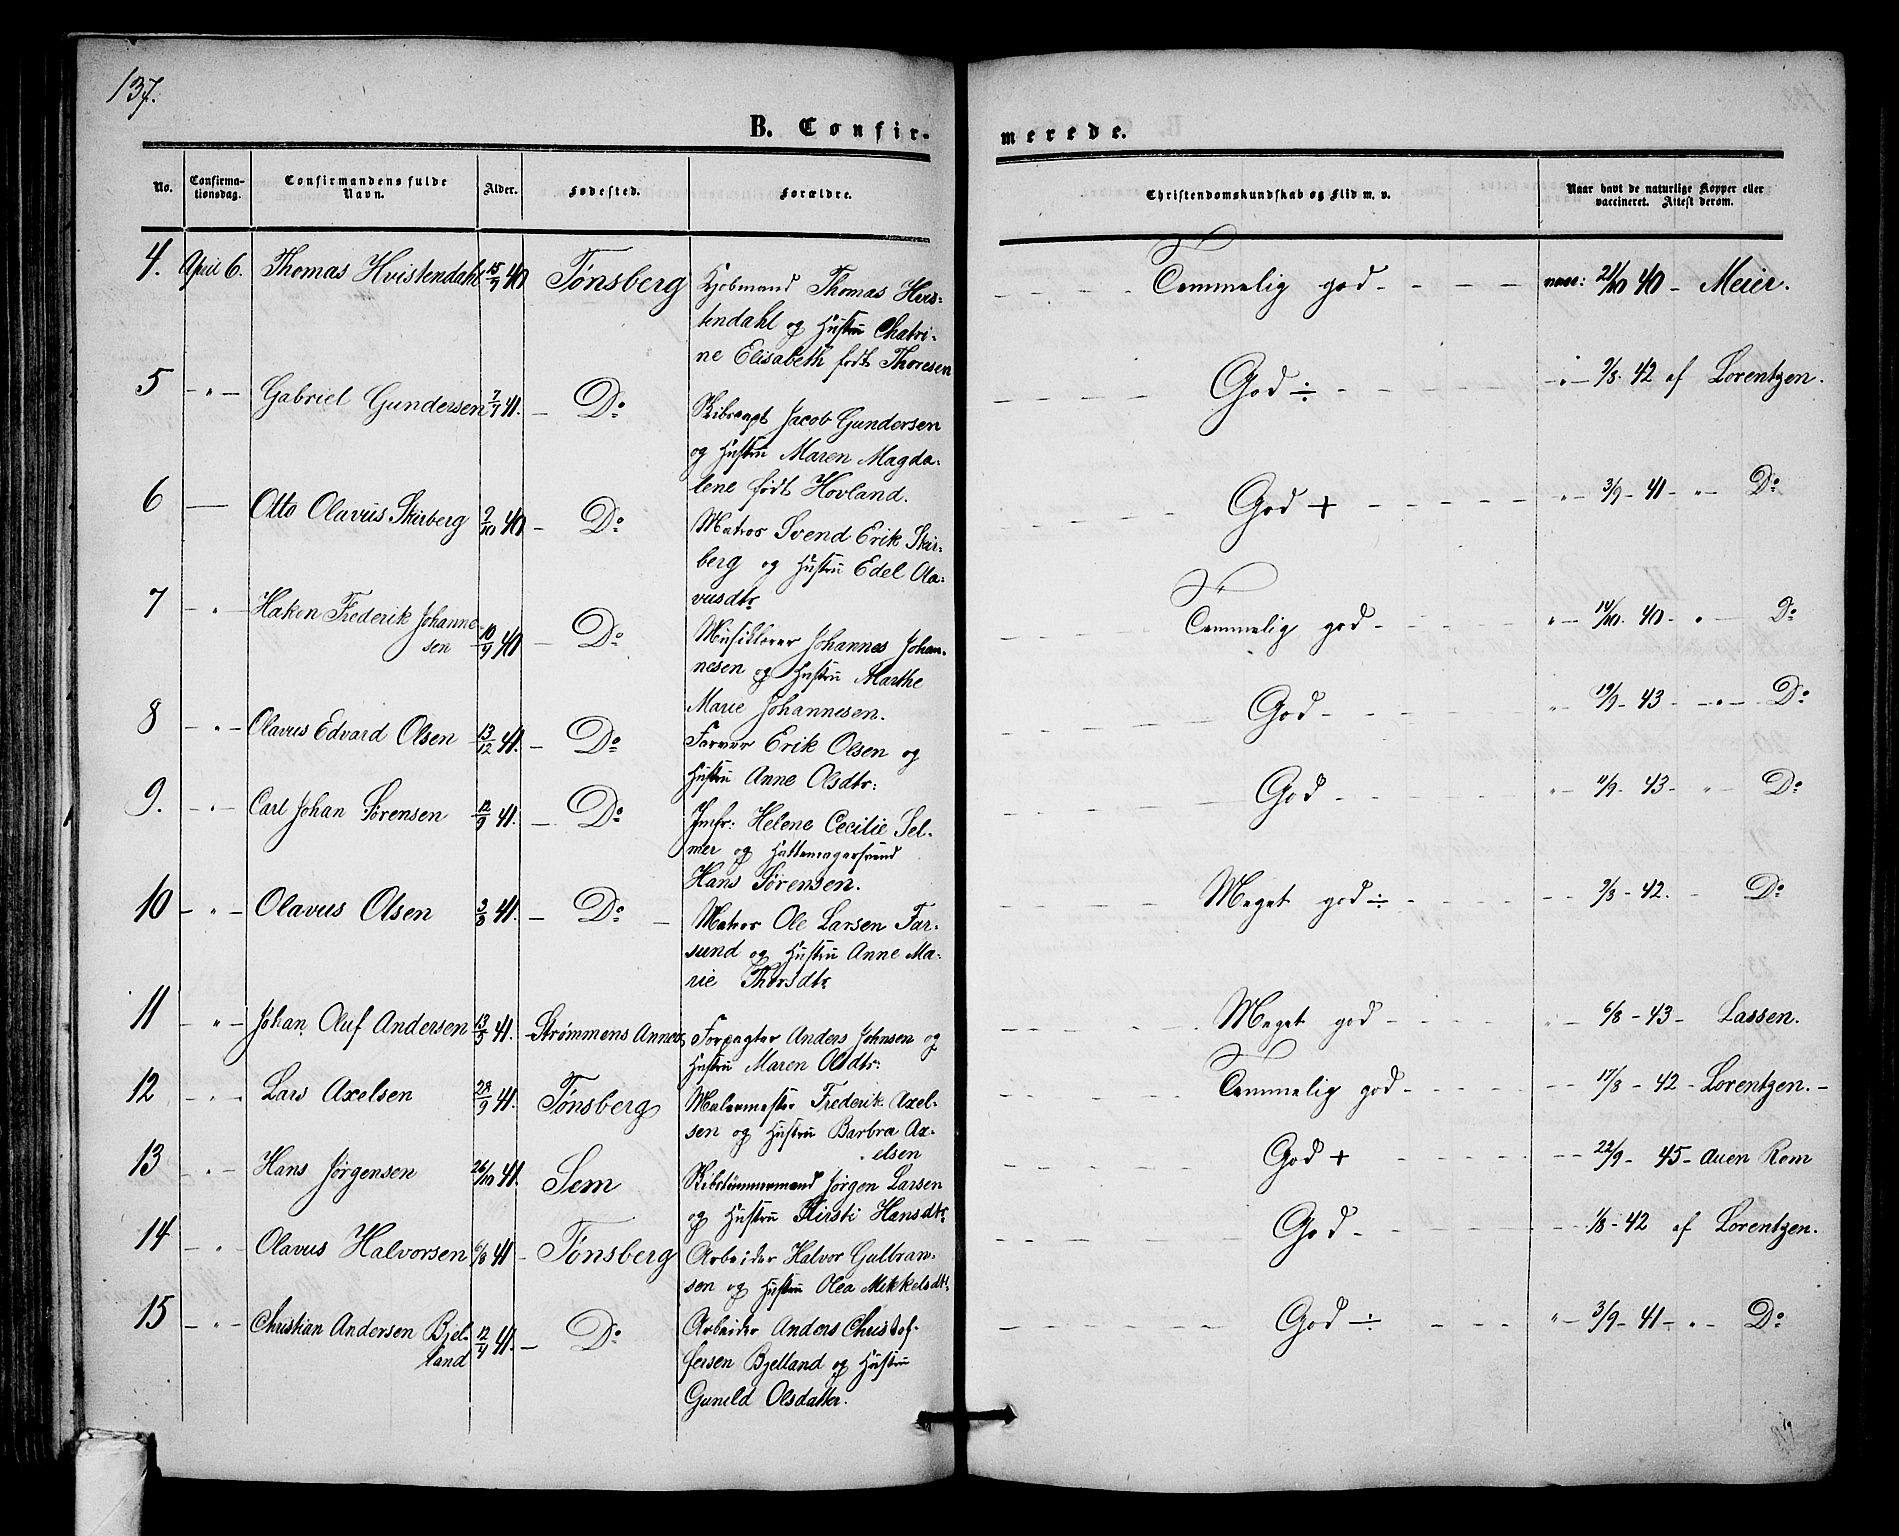 137.
B. Confirmerede.
No. | Confirmationsdag. | Confirmandens fulde Navn. | Alder. | Fødested. | Forældre. | Christendomskundskab og Flid m. v. | Naar havt de naturlige Kopper eller vaccineret. Attest derom.
4. April 6. Thomas Hvistendahl 15/7 40 Tønsberg Kjøbmand Thomas Hvis- Temmelig god - vacc: 21/10 40 - Meier.
tendahl og Hustru Chatri-
ne Elisabeth født Thoresen
5 - " - Gabriel Gundersen 7/7 41. - Do Skibscapt Jacob Gundersen God ÷ - " - 9/8. 42 af Lorentzen.
og Hustru Maren Magda-
lene født Hovland.
6 — Otto Olavus Skirberg 2/10 40 - Do Matros Svend Erik Skir- God + " - 3/9 - 41 - " - Do
berg og Hustru Edel Ola-
vusdtr
7 - " - Haken Frederik Johanne- 10/9 40 - Do Musiklærer Johannes Johan- Temmelig god - " - 14/10. 40 - " - Do
sen nesen og Hustru Marthe
Marie Johannesen.
8 - " - Olavus Edvard Olsen 13/12 41. - Do Farver Erik Olsen og God - " - 19/9 - 43 - " - Do
Hustru Anne Olsdtr:
9. - " - Carl Johan Sørensen 12/9 41. - Do Jmfr: Helene Cecilie Sel- God " - 11/9 - 43 - " - Do
mer og Hattemagersvend
Hans Sørensen.
10 - " - Olavus Olsen 3/8 41. - Do - Matros Ole Larsen Far- Meget god ÷ - 9/8 - 42. - Do
sund og Hustru Anne Ma-
rie Thorsdtr
11 - " - Johan Oluf Andersen 13/5 41. - Strømmens Annex Forpagter Anders Johnsen og Meget god - " - 6/8 - 43 - Lassen.
Hustru Maren Olsdtr:
12 - " - Lars Axelsen 28/9 41. Tønsberg Malermester Frederik Axel- Temmelig god - 17/8 - 42 - Lorentzen. -
sen og Hustru Barbra Ax-
elsen
13 - " - Hans Jørgensen 26/10 41. Sem Skibstømmermand Jørgen Larsen God + - 22/9 - 45 - Auen Rom
og Hustru Kirsti Hansdtr
14 - " - Olavus Halvorsen 6/8 41 - Tønsberg Arbeider Halvor Gulbran- God - 1/8 - 42 af Lorentzen.
sen og Hustru Olea Mikkelsdtr.
15 - " - Christian Andersen Bjel- 12/4 41. - Do Arbeider Anders Christof- God ÷ " - 3/9 - 41 - " - Do
land fersen Bjelland og Hustru
Guneld Olsdatter.